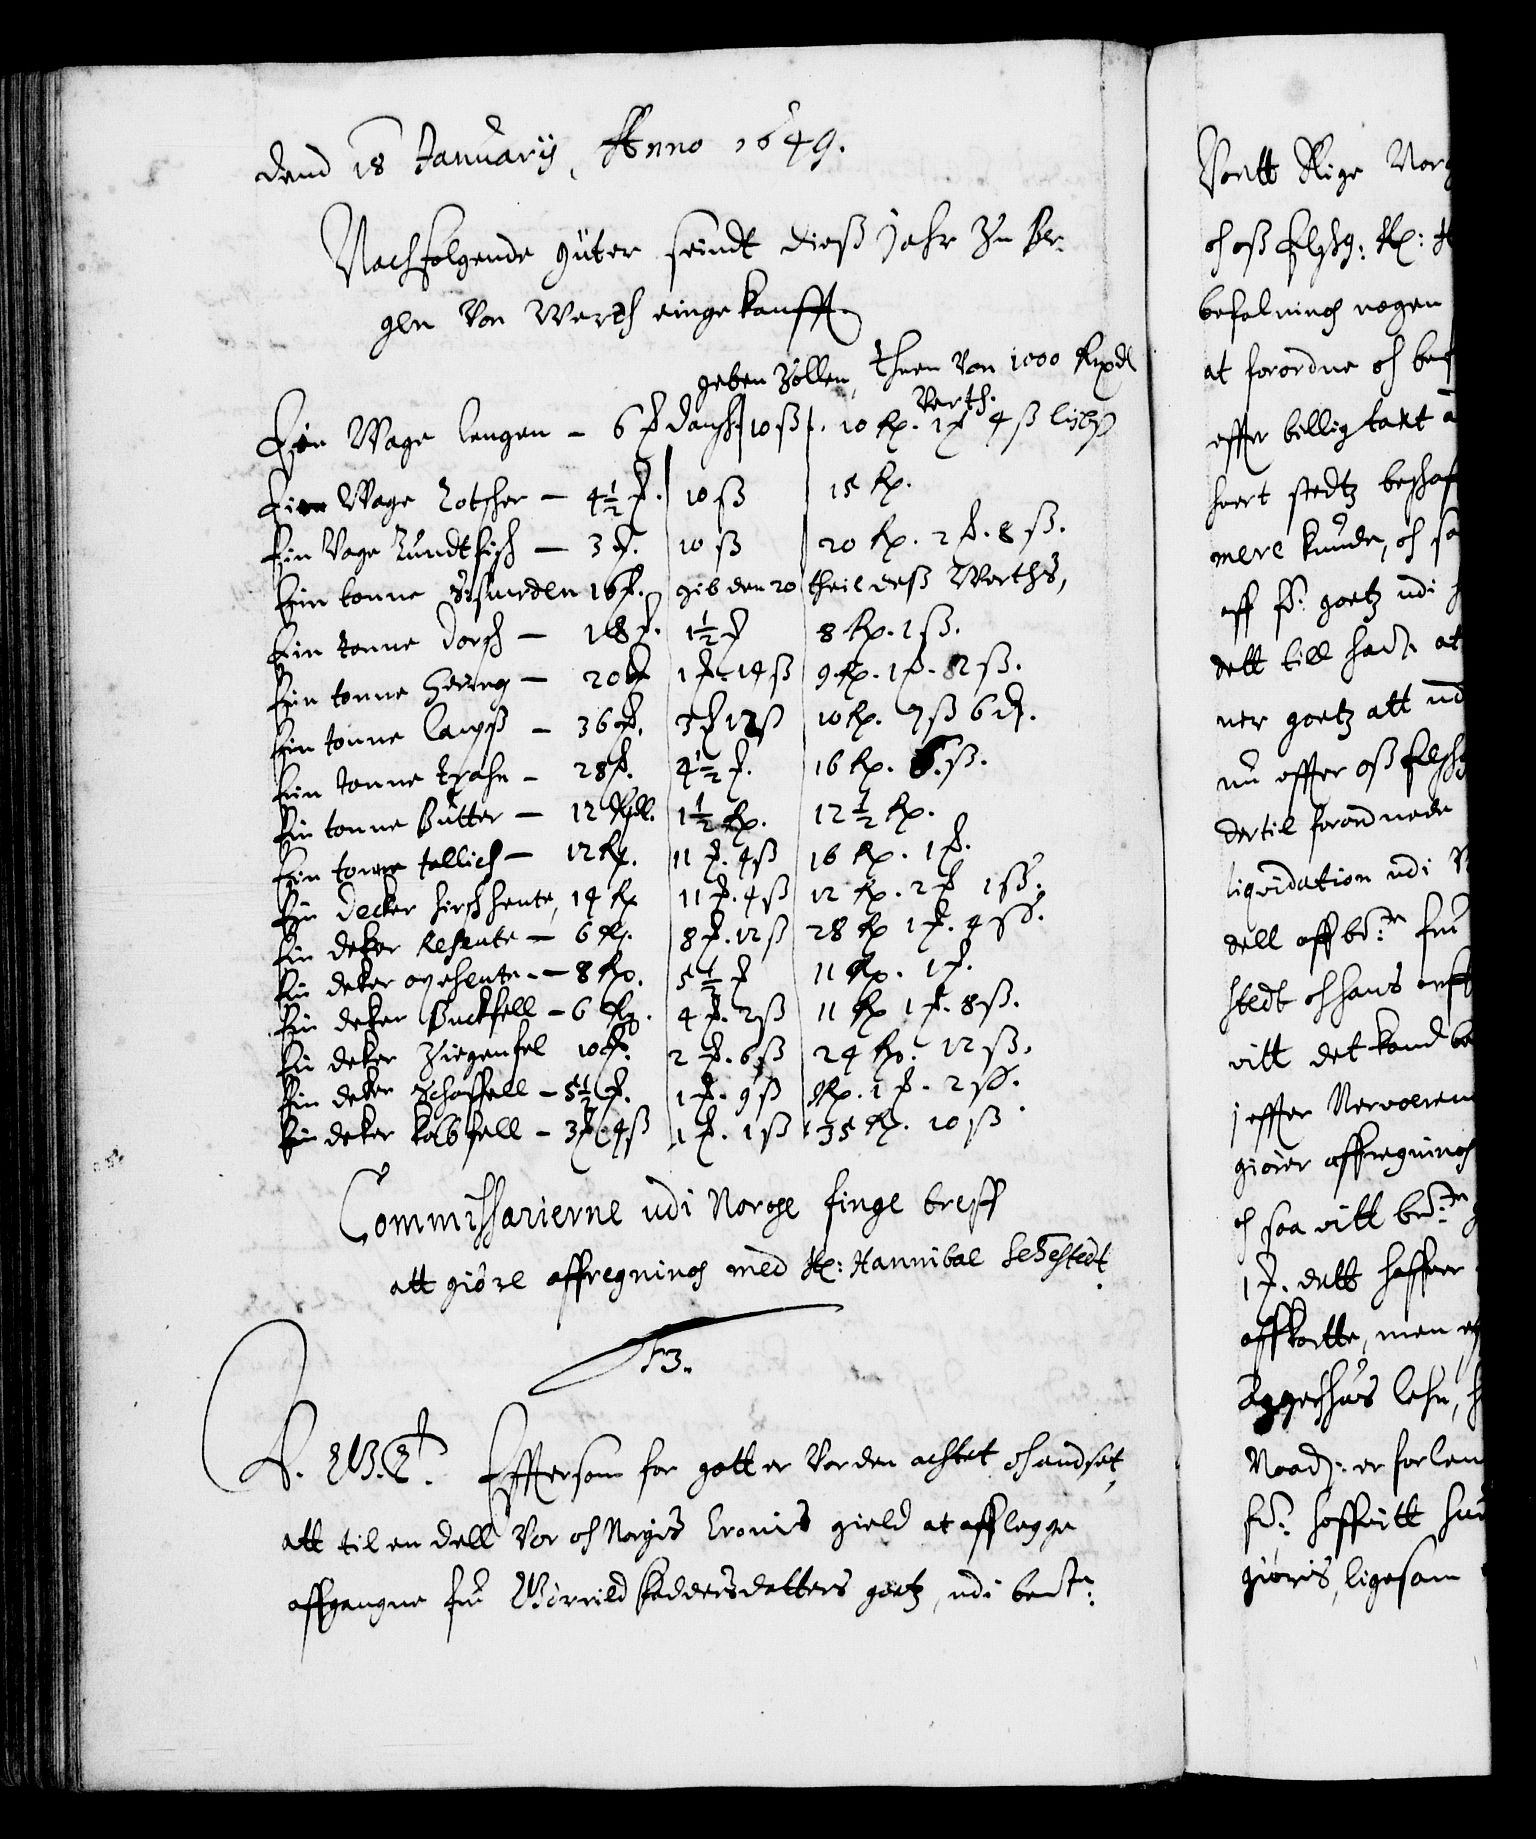 Dend 18 Januarij, Anno 1649.
Nachfolgende güter seindt dieß Jahr zu Ber-
gen von Werth eingekaufft
geben Zollen, thuen von 1000 Rixdl
Werth.
Ein Wage lengen - 6 ₰ dansch 10 ß 10 Rp. 1 ₰ 4 ß lybß
Ein Wage Rotscher - 4½ ₰. 10 ß 15 Rp.
Ein Vage Rundtfisch - 3 ₰. 10 ß 20 Rp. 2 ₰. 8 ß.
Ein tonne 16 ₰. gib den 20 theil deß Werths,
Ein tonne Dorsch - 18 ₰. 1½ ₰ 8 Rp. 1 ß.
Ein tonne Hering - 20 ₰ 1 ₰. 14 ß 9 Rp. 1 ₰. 82 ß.
Ein tonne Lachß - 36 ₰. 3 ₰ 12 ß 10 Rp. 7 ß 6 d.
Ein tonne Trahn - 28 ₰. 4½ ₰. 16 Rp. 6. ß.
Ein tonne Butter - 12 Rdl. 1½ Rp. 12½ Rp.
Ein tonne tallich - 12 Rp. 11 ₰. 4 ß 16 Rp. 1 ₰.
Ein Decker hirschheute, 14 Rp 11 ₰. 4 ß 12 Rp. 2 ₰ 1 ß.
Ein deker Reheute - 6 Rp. 8 ₰. 12 ß 28 Rp 1 ₰. 4 ß.
Ein deker oxeheute - 8 Rp. 5½ ₰ 11 Rp. 1 ₰.
Ein deker Buckfell - 6 Rp. 4 ₰. 2 ß 11 Rp 1 ₰. 8 ß.
Ein deker Ziegenfel 10 ₰. 2 ₰. 6 ß 24 Rp. 12 ß.
Ein deker Schaffell - 5½ ₰. 1 ₰. 9 ß Rp. 1 ₰. 2 ß.
Ein deker kalbfell - 3 ₰. 4 ß 1 ₰. 1 ß 35 Rp. 10 ß
Commissarierne udi Norge finge breff
att giöre affregning med Hr: Hannibal Sehestedt
F3.
V. G. T. Efftersom for gott er vorden achtet och andset,
att til en dell vor och Norgis Cronis gield at afflegge
affgangne fru Görrild Faddersdatters goetz, udi bemte:
Vortt Rige Norg
och oß elskg: Hr: H
befalning nogen
at forordne och bes
effter billig taxt a
huert stedtz beschaf
mere kunde, och sa
aff fru goetz udi
dett till had at
ner goetz att ud
nu effter oß elskg
dertil forordnede
liqvidation udi
dell aff bemte fru
stedt och hans arff
vitt det kand be
j effter Nerværen
giörer affregning
och saa vitt bemte
1 ₰. dett haffuer
affkortte, men
Aggershus lehn,
Naad: er forlen
fru: hoffuitt hu
giöris, ligesom